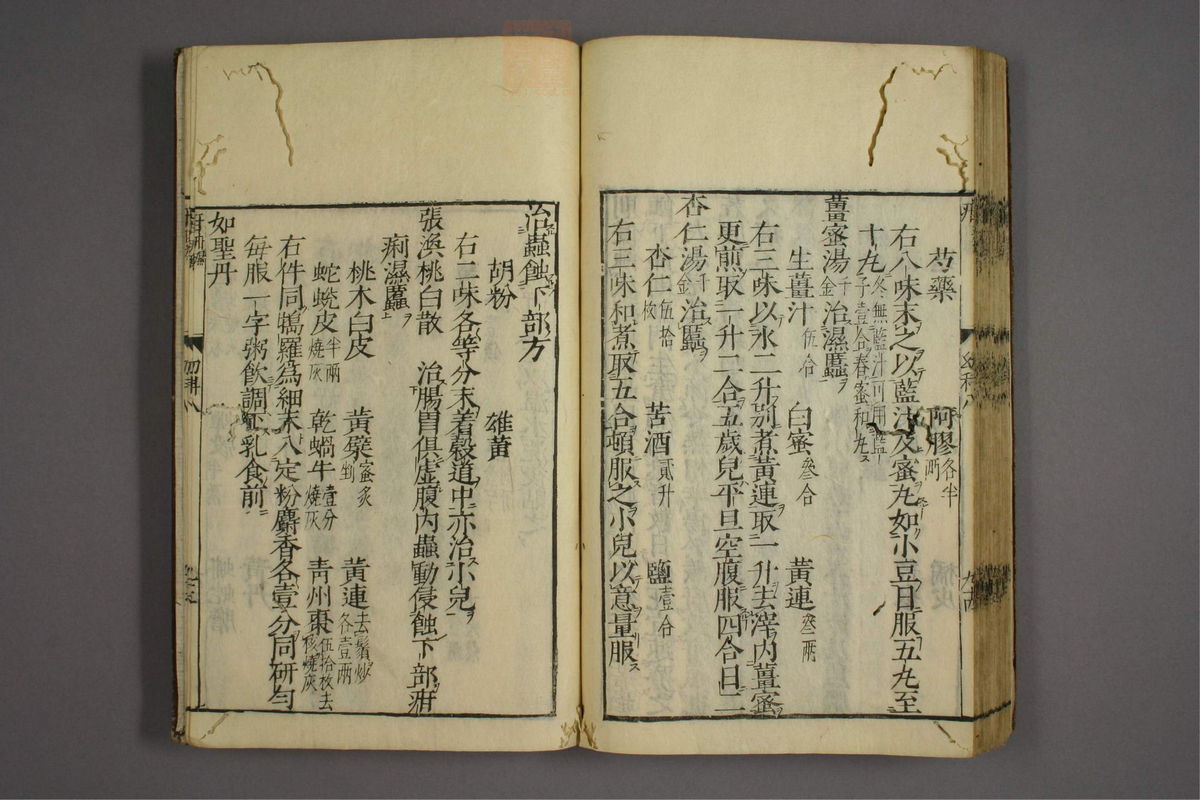 芍藥 阿膠各半兩
右八味末之以藍汁及蜜丸如小豆日服五丸至
十丸冬無藍汁可用藍子壹合舂蜜和丸
薑蜜湯千金治濕䘌
生薑汁伍合 白蜜叄合 黃連叄兩
右三味以水二升別煮黃連取一升去滓內薑蜜
更煎取一升二合五歲兒平旦空腹服四合日二
杏仁湯千金治䘌
杏仁伍拾枚 苦酒貳升 鹽壹合
右三味和煮取五合頓服之小兒以意量服
治蟲蝕下部方
胡粉 雄黃
右二味各等分末着穀道中亦治小兒
張渙桃白散 治腸胃俱虛腹內蟲動侵蝕下部疳
痢濕䘌
桃木白皮 黃蘗蜜炙剉 黃連去鬚炒各壹兩
蛇蛻皮半兩燒灰 乾蝸牛壹分燒灰 青州棗伍拾枚去核燒灰
右件同擣羅為細末入定粉麝香各壹分同研勻
每服一字粥飲調下乳食前
如聖丹